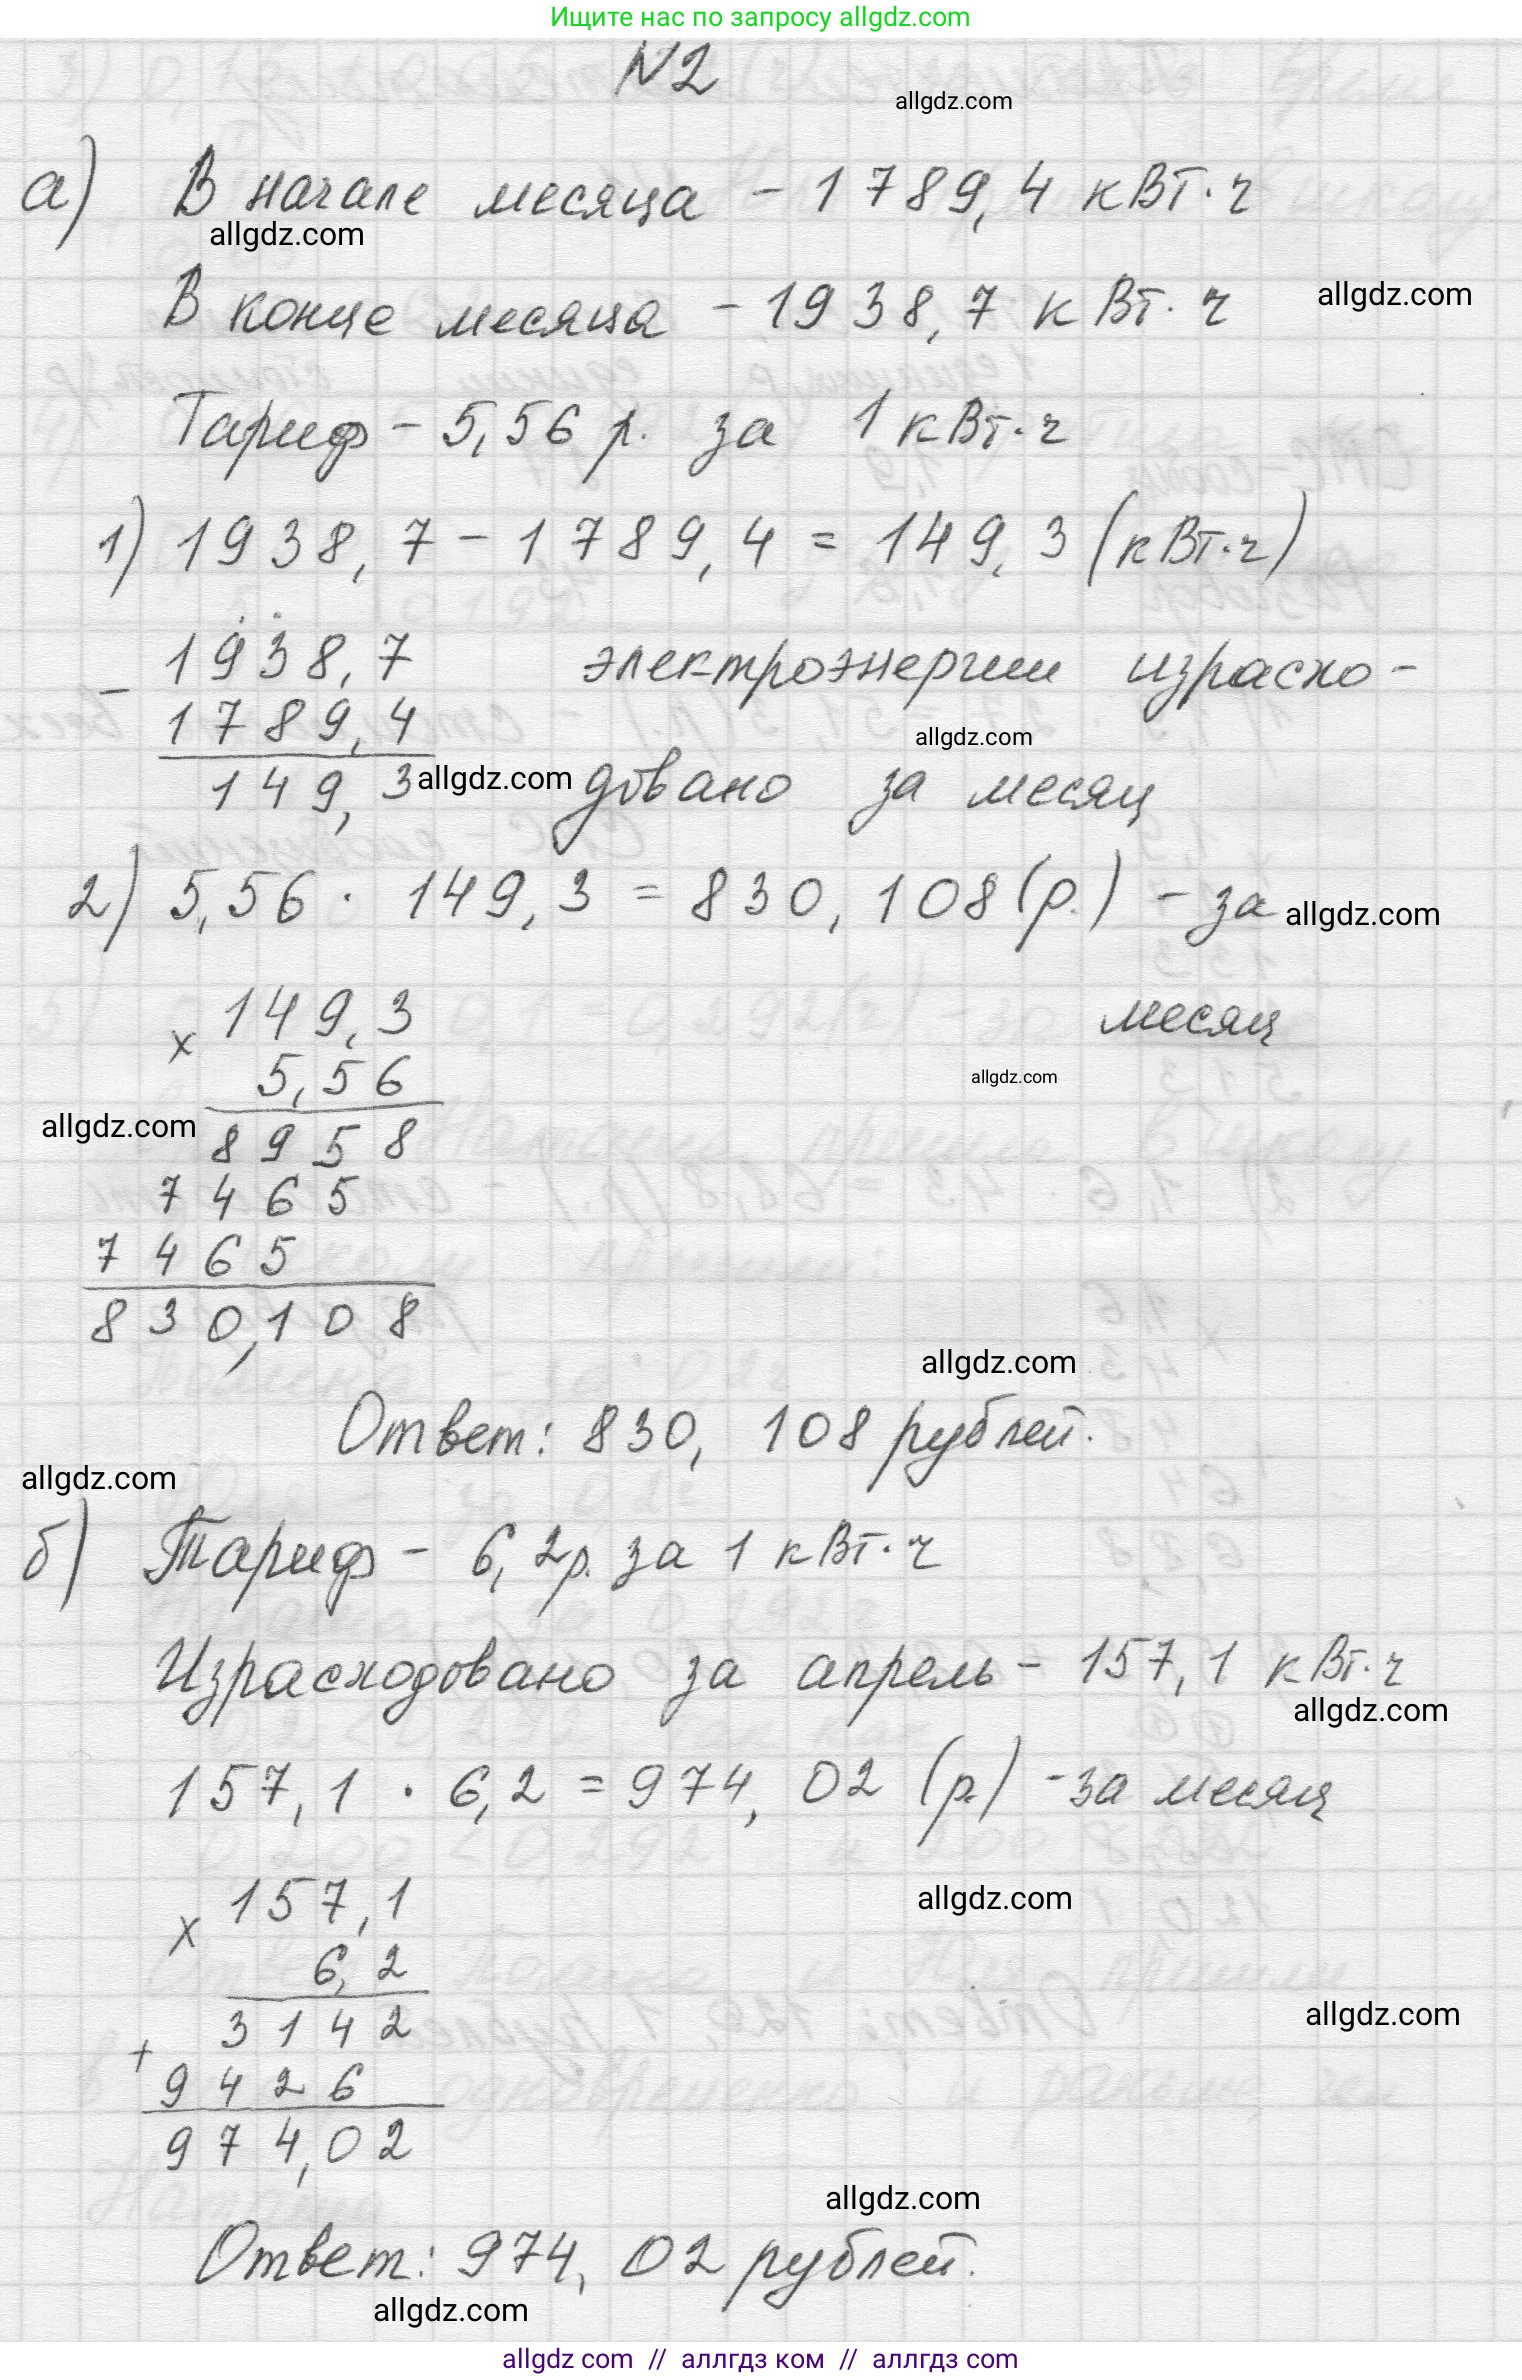 Ищите нас по запросу allgdz.com
N2
allgdz.com
а) В начале месяца - 1789,4 кВт·ч
allgdz.com
В конце месяца - 1938,7 кВт·ч
allgdz.com
Тариф - 5,56 р. за 1 кВт·ч
1) 1938,7 - 1789,4 = 149,3 (кВт·ч)
- 1938,7 электроэнергии израсхо-
1789,4
allgdz.com
149,3 довано за месяц
allgdz.com
2) 5,56 · 149,3 = 830,108 (р.) - за
allgdz.com
месяц
x 149,3
5,56
allgdz.com
allgdz.com
8958
7465
7465
830,108
allgdz.com
Ответ: 830,108 рублей.
allgdz.com
б) Тариф - 6,2р. за 1 кВт·ч
Израсходовано за апрель - 157,1 кВт·ч
allgdz.com
157,1 · 6,2 = 974,02 (р.) - за месяц
allgdz.com
x 157,1
6,2
allgdz.com
3142
+ 9426
974,02
allgdz.com
Ответ: 974,02 рублей.
allgdz.com
allgdz com // аллгдз ком // allgdz com